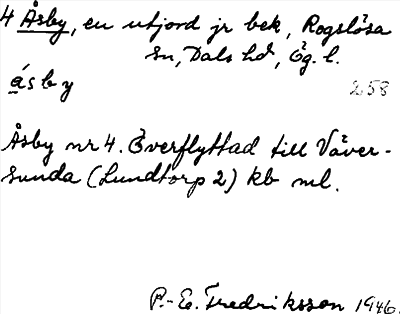 4 Åsby, en utjord jr bek, Rogslösa
sn, Dals hd, Ög. l.
ásby 258
Åsby nr 4. Överflyttad till Väver-
sunda (Lundtorp 2) kb ml.
P.-E. Fredriksson 1946.